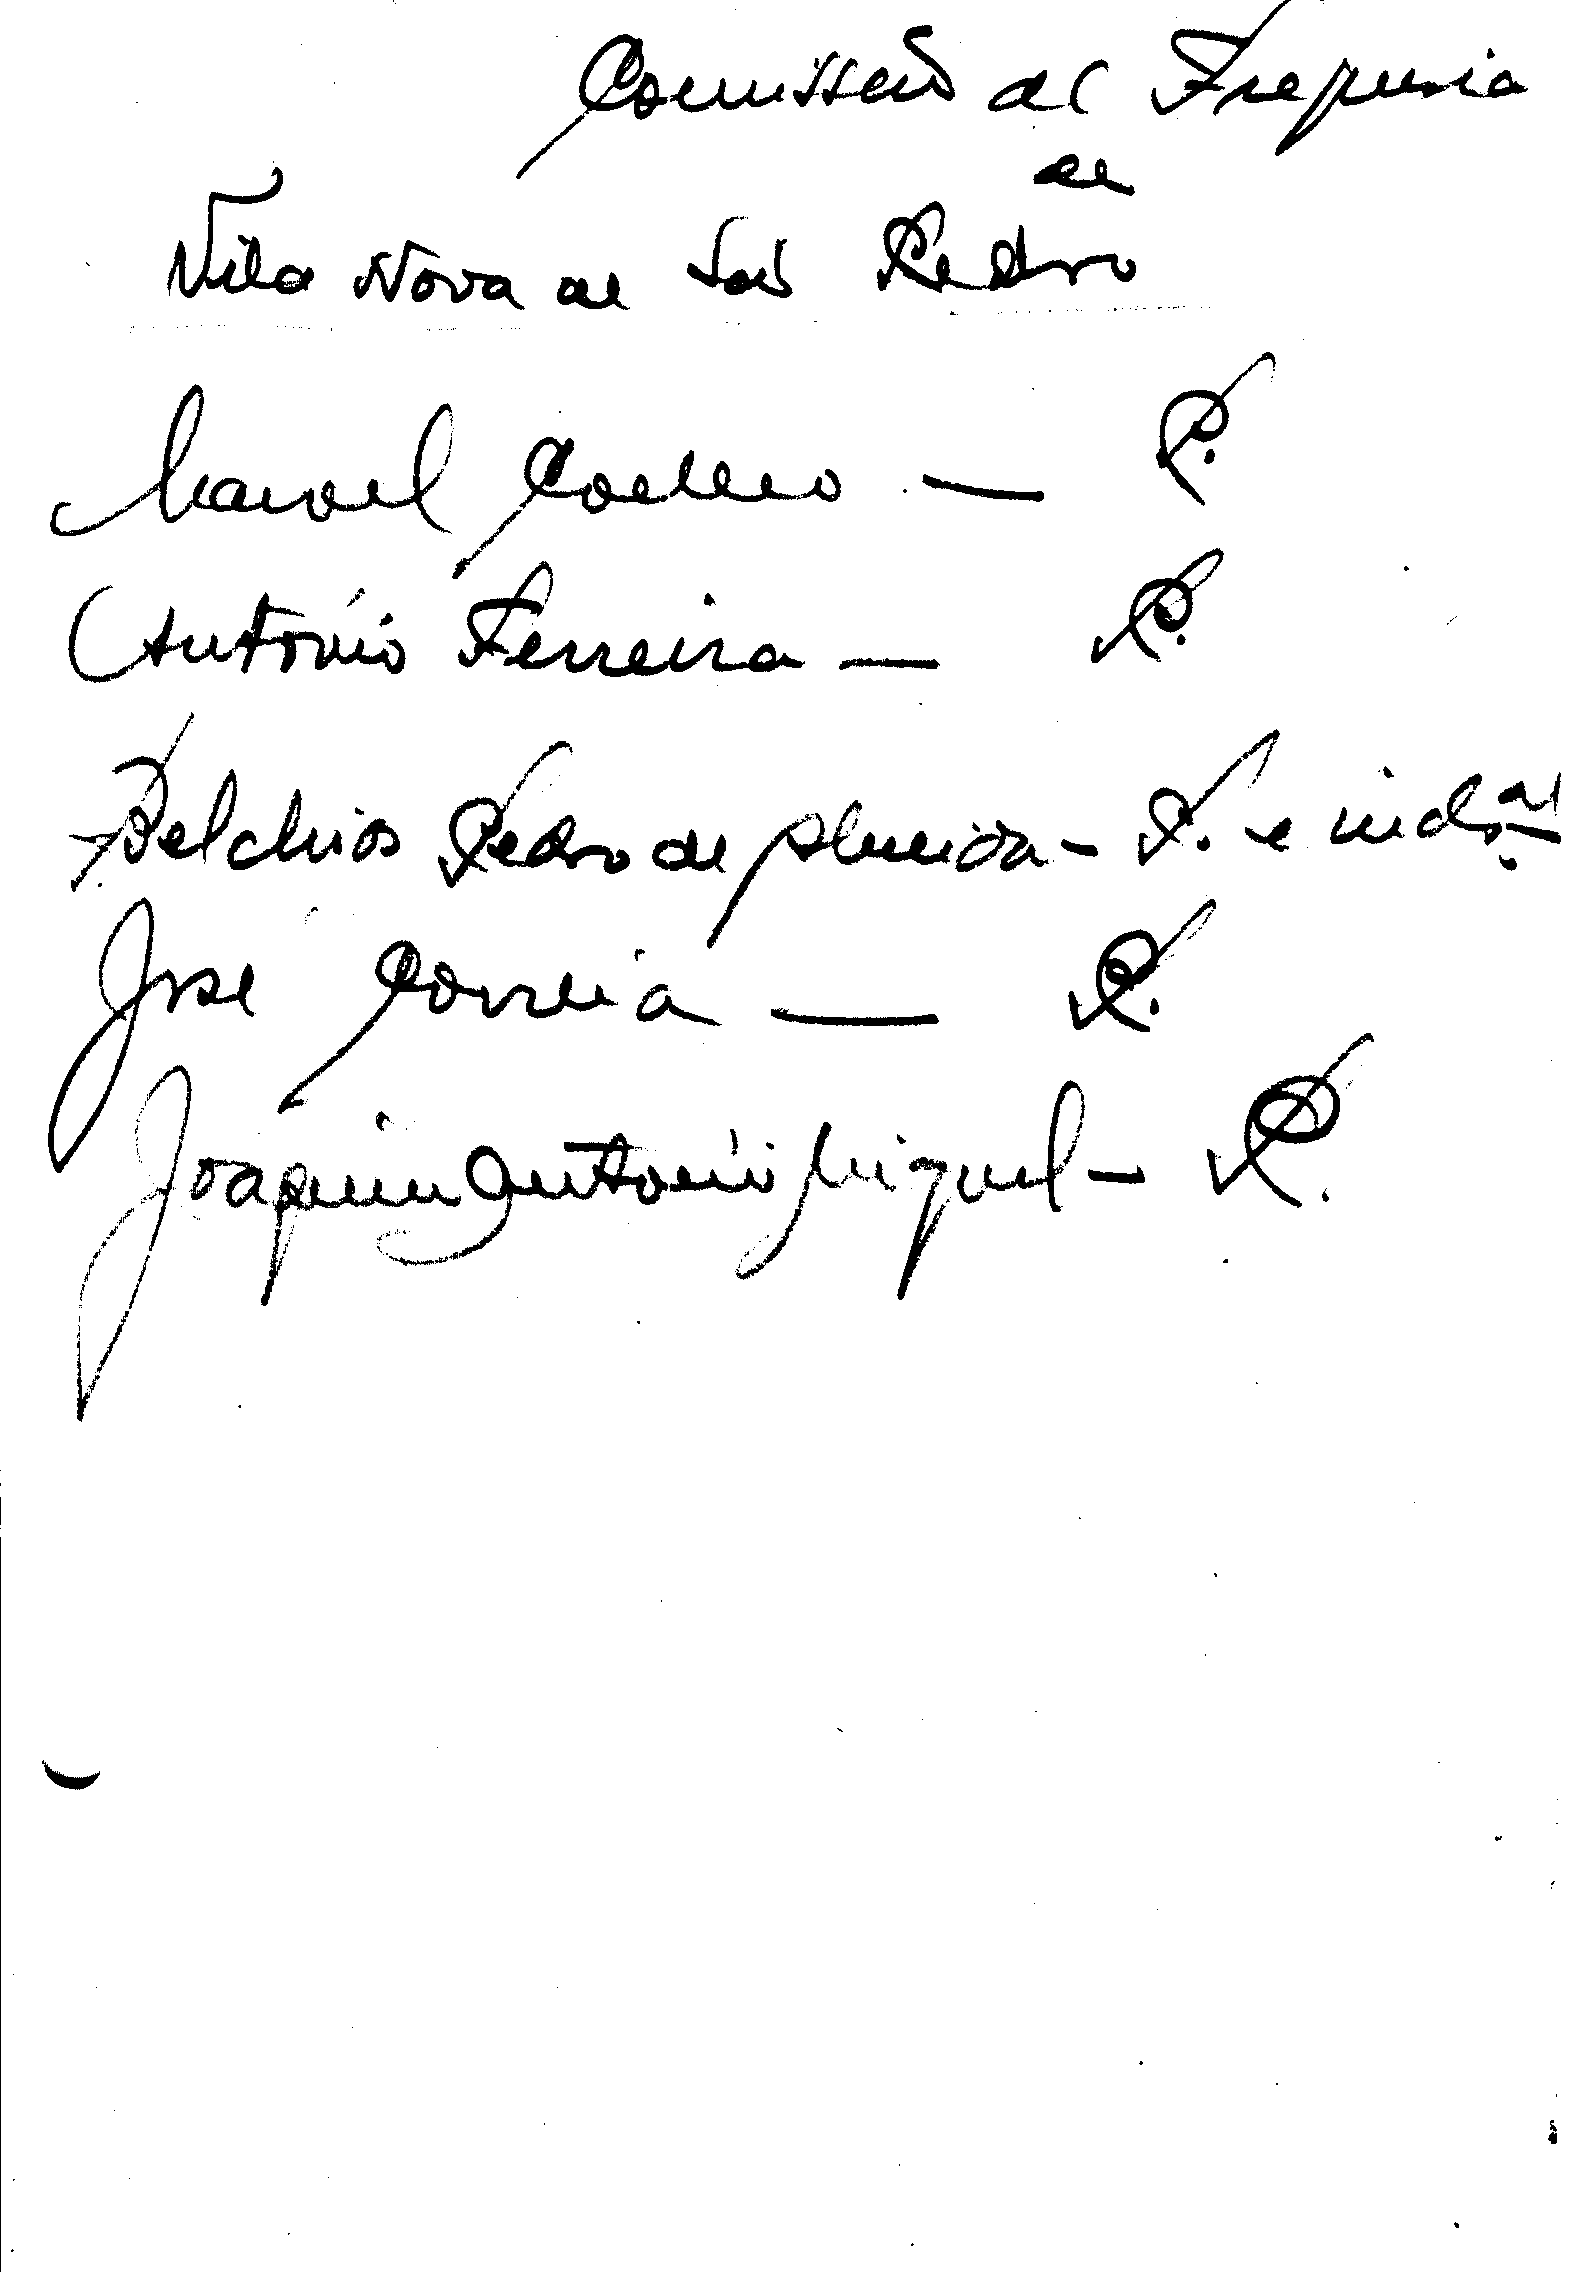 Comissão de Freguesia
de
Vila Nova de São Pedro
Manoel Coelho — P.
António Ferreira — P.
Belchior Pedro de Almeida — P. e
José Correia — P.
Joaquim António Miguel — P.